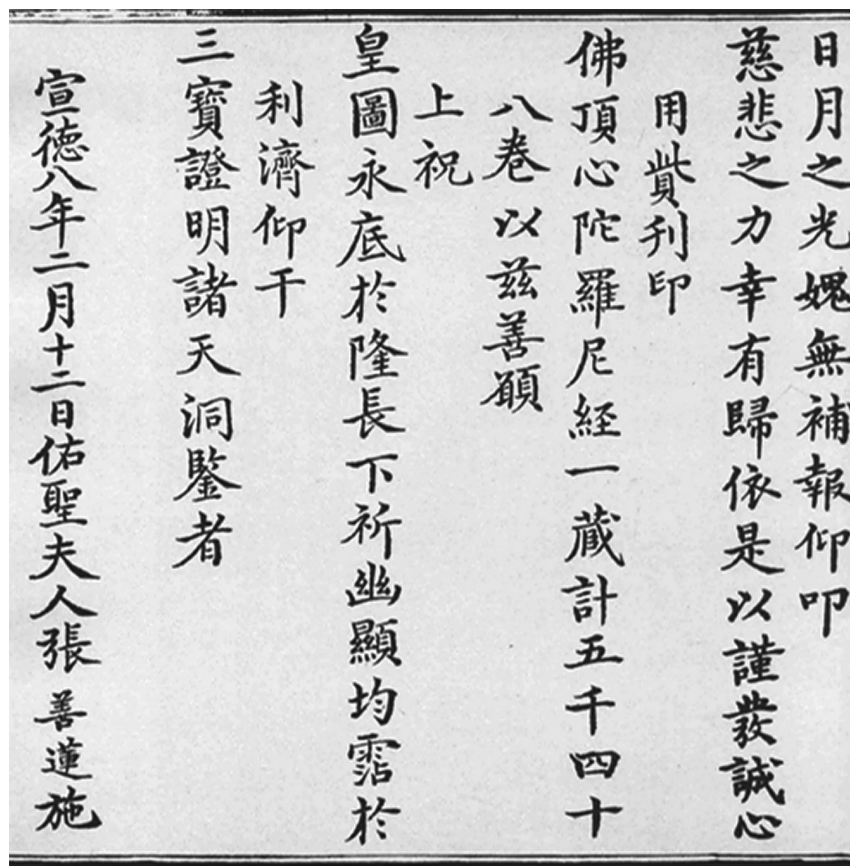 日月之光媿無補報仰叩
慈悲之力幸有歸依是以謹發誠心
用貲刋印
佛頂心陀羅尼經一藏計五千四十
八卷以茲善願
上祝
皇圖永底於隆長下祈幽顯均霑於
利濟仰干
三寶證明諸天洞鑒者
宣德八年二月十二日佑聖夫人張善蓮施